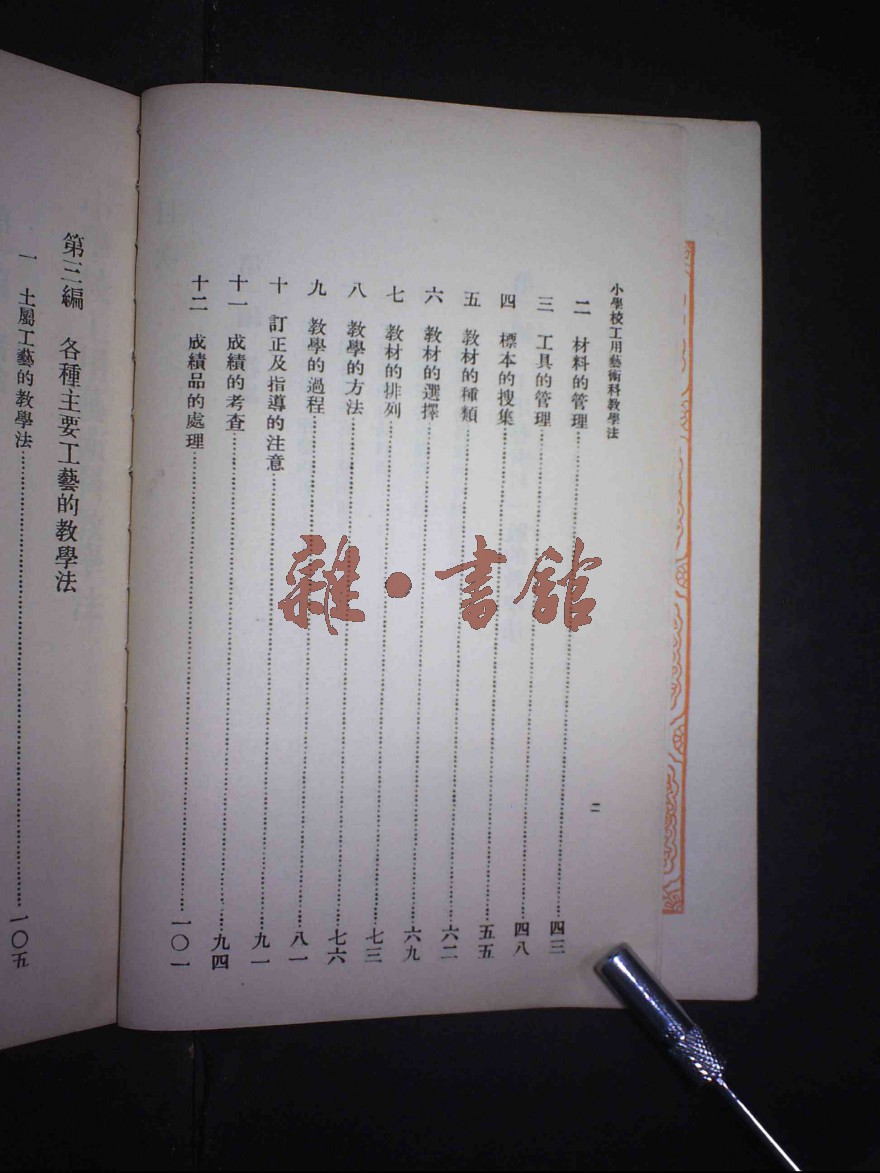 小學校工用藝術科教學法
二 材料的管理……四三
三 工具的管理……四八
四 標本的搜集……五五
五 教材的種類……六二
六 教材的選擇……六九
七 教材的排列……七三
八 教學的方法……七六
九 教學的過程……八一
十 訂正及指導的注意……九一
十一 成績的考查……九四
十二 成績品的處理……一〇一
二
第三編 各種主要工藝的教學法
一 土屬工藝的教學法……一〇五
雜·書館